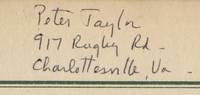 Peter Taylor
917 Rugby Rd -
Charlottesville, Va -